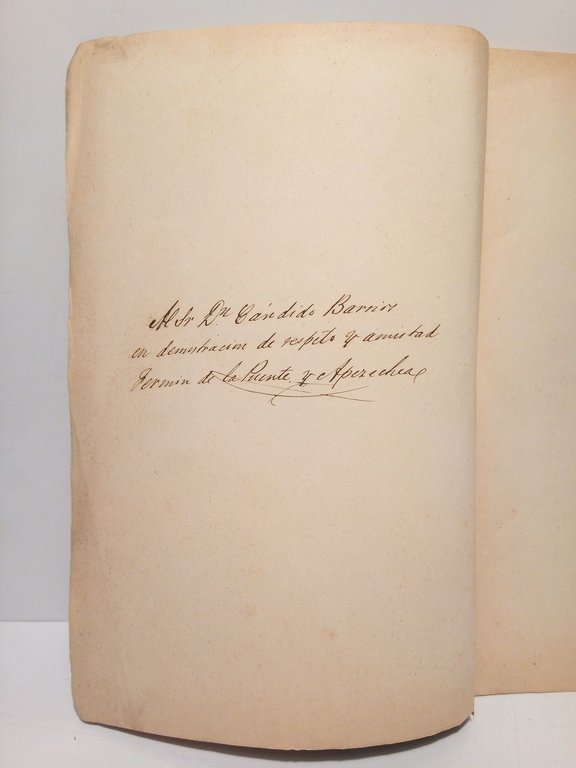 Al Sr Dn Cándido Barrios
en demostracion de respeto y amistad
Fermin de la Puente y Apezechea